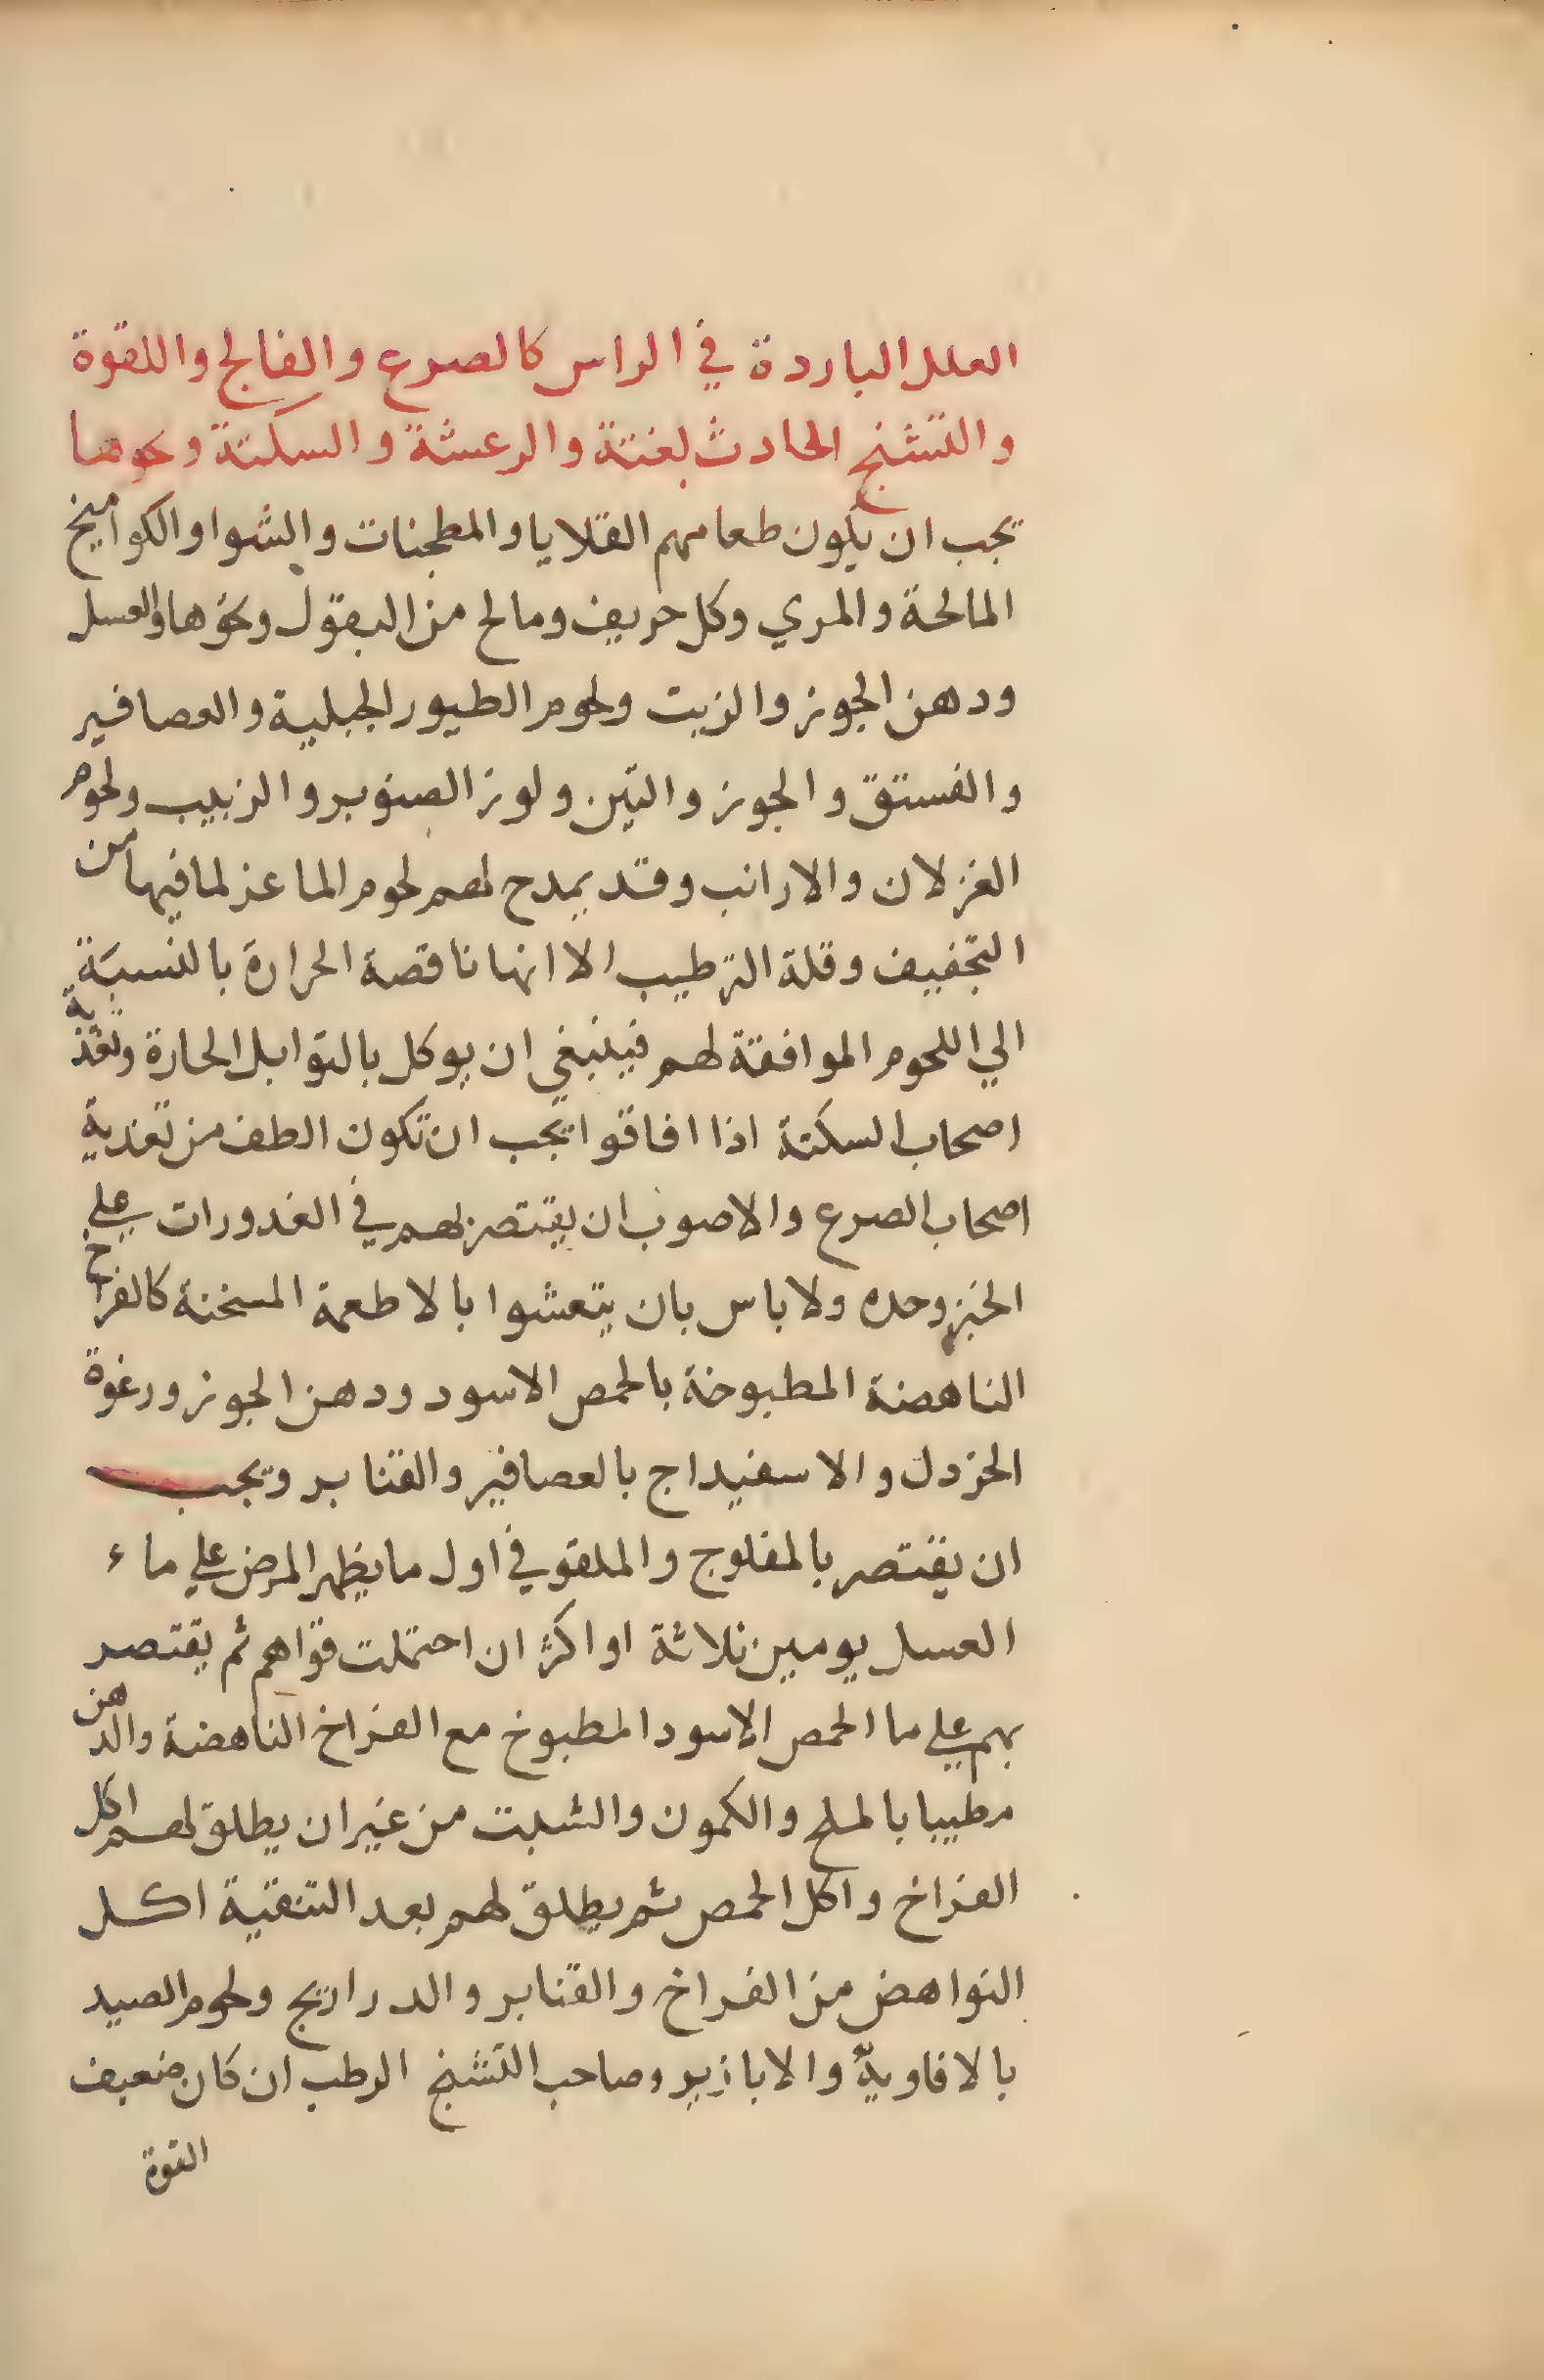 العلل الباردة في الراس كالصرع والفالج واللقوة
والتشنج الحادث بغتة والرعشة والسكتة ونحوها
يجب ان يكون طعامهم القلايا والمطجنات والشوا والكواميخ
المالحة والمري وكل حريف ومالح من البقول ونحوها والعسل
ودهن الجوز والزيت ولحوم الطيور الجبلية والعصافير
والفستق والجوز والتين ولوز الصنوبر والزبيب ولحوم
الغزلان والارانب وقد يمدح لهم لحوم الماعز لما فيها من
التجفيف وقلة الترطيب الا انها ناقصة الحرارة بالنسبة
الي اللحوم الموافقة لهم فينبغي ان يوكل بالتوابل الحارة وتغذية
اصحاب السكتة اذا افاقوا يجب ان تكون الطف من تغذية
اصحاب الصرع والاصوب ان يقتصر لهم في الغدورات علي
الخبز وحده ولا باس بان يتعشوا بالاطعمة المسخنة كالفراخ
الناهضة المطبوخة بالحمص الاسود ودهن الجوز ورغوة
الخردل والاسفيداج بالعصافير والقنابر ويجب
ان يقتصر بالمفلوج والملقو في اول ما يظهر المرض علي ماء
العسل يومين ثلاثة او اكثر ان احتملت قواهم ثم يقتصر
بهم علي ما الحمص الاسود المطبوخ مع الفراخ الناهضة والدهن
مطيبا بالملح والكمون والشبت من غير ان يطلق لهم اكل
الفراخ واكل الحمص ثم يطلق لهم بعد التنقية اكل
النواهض من الفراخ والقنابر والدراريج ولحوم الصيد
بالافاوية والابازير وصاحب التشنج الرطب ان كان ضعيف
القوة